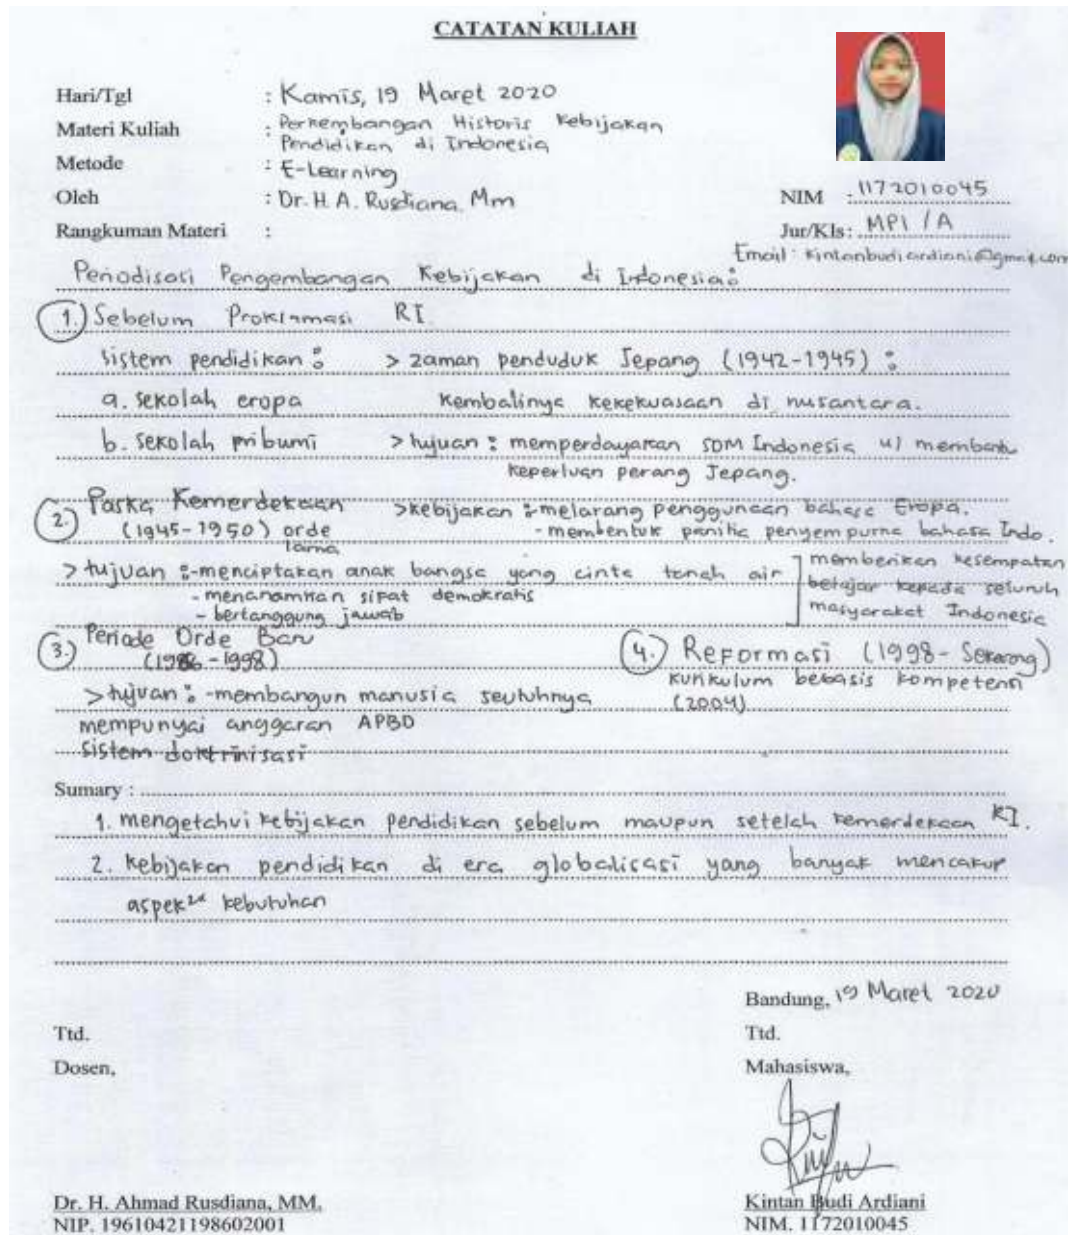 CATATAN KULIAH
Hari/Tgl : Kamis, 19 Maret 2020
Materi Kuliah : Perkembangan Historis Kebijakan
Pendidikan di Indonesia
Metode : E-Learning
Oleh : Dr. H. A. Rusdiana, Mm
NIM : 1172010045
Rangkuman Materi :
Jur/Kls : MPI / A
Email : Kintanbudiardiani@gmail.com
Periodisasi Pengembangan Kebijakan di Indonesia :
1.) Sebelum Proklamasi RI
Sistem pendidikan : > zaman penduduk Jepang (1942-1945) :
a. sekolah eropa Kembalinya kekekuasaan di nusantara.
b. sekolah pribumi > tujuan : memperdayakan SDM Indonesia u/ membantu
keperluan perang Jepang.
2.) Paska Kemerdekaan >kebijakan :-melarang penggunaan bahasa Eropa.
(1945-1950) orde - membentuk panitia penyempurna bahasa Indo.
lama
> tujuan :-menciptakan anak bangsa yang cinta tanah air
- menanamkan sifat demokratis
- bertanggung jawab
memberikan kesempatan
belajar kepada seluruh
masyarakat Indonesia
3.) Periode Orde Baru
(1986-1998)
4.) Reformasi (1998-Sekarang)
kurikulum bebasis kompetensi
(2004)
> tujuan : -membangun manusia seutuhnya
mempunyai anggaran APBD
sistem doktrinisasi
Sumary :
1. mengetahui kebijakan pendidikan sebelum maupun setelah kemerdekaan RI.
2. kebijakan pendidikan di era globalisasi yang banyak mencakup
aspek²ⁿ kebutuhan
Bandung, 19 Maret 2020
Ttd. Ttd.
Dosen, Mahasiswa,
Dr. H. Ahmad Rusdiana, MM. Kintan Budi Ardiani
NIP. 19610421198602001 NIM. 1172010045